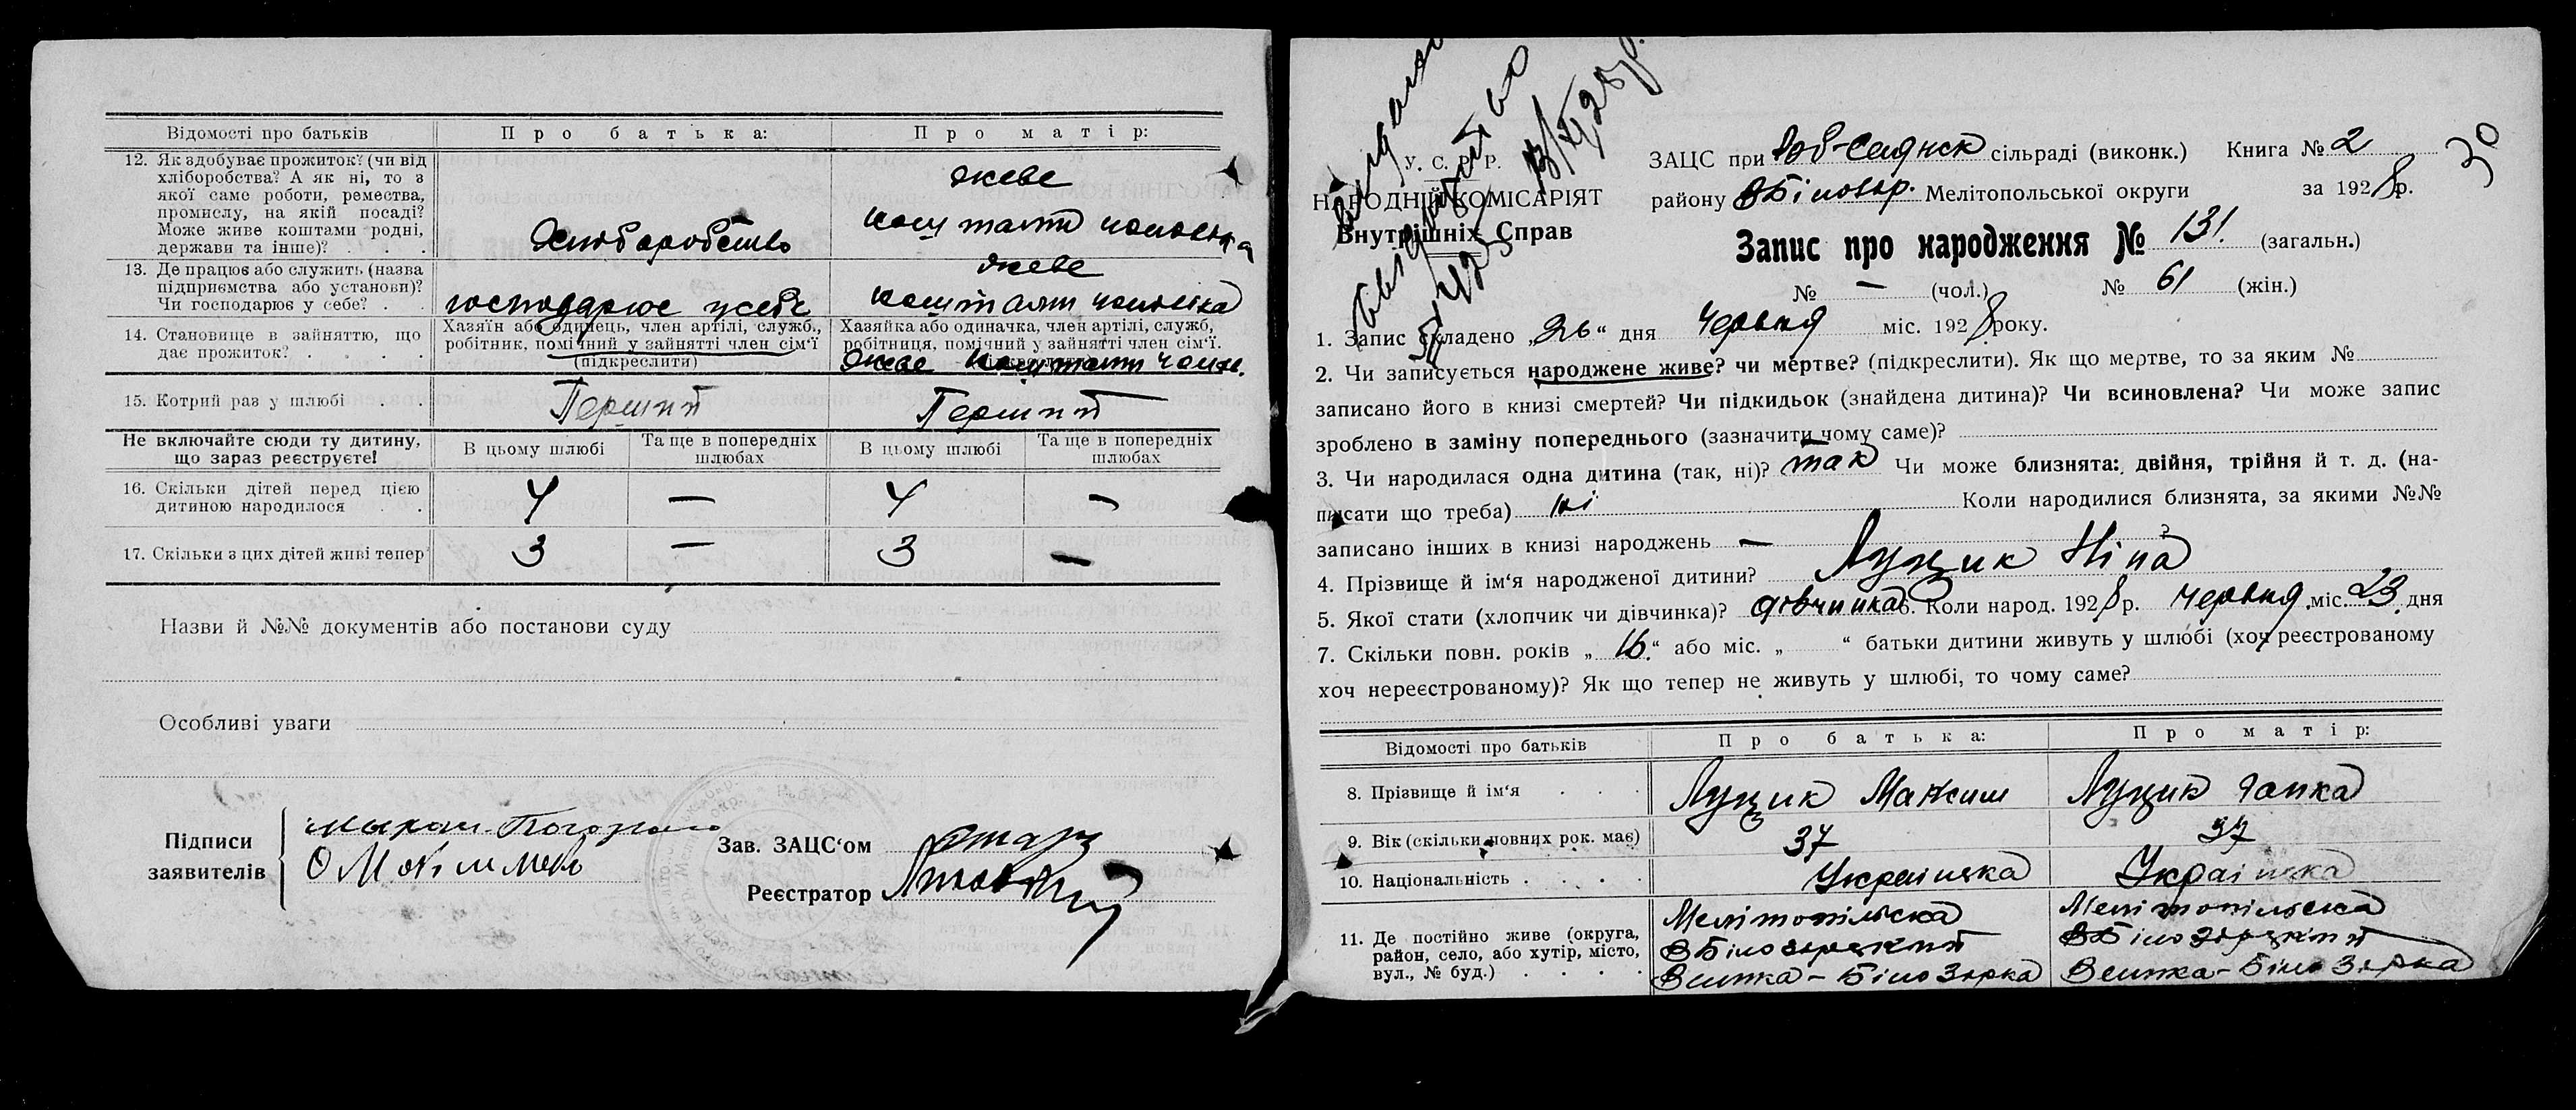 Відомості про батьків
Про батька:
Про матір:
12. Як здобуває прожиток? (чи від
хліборобства? А як ні, то з
якої саме роботи, ремества,
промислу, на якій посаді?
Може живе коштами родні,
держави та інше)? . . .
Хліборобство
живе
коштами чоловіка
13. Де працює або служить (назва
підприємства або установи)?
Чи господарює у себе? . .
господарює у себе
живе
коштами чоловіка
14. Становище в зайняттю, що
дає прожиток? . . . .
Хазяїн або одинець, член артілі, служб.,
робітник, помічний у зайнятті член сім'ї
(підкреслити)
Хазяйка або одиначка, член артілі, служб,
робітниця, помічний у зайнятті член сім'ї.
живе коштами чолов.
15. Котрий раз у шлюбі . .
Перший
Перший
Не включайте сюди ту дитину,
що зараз реєструєте!
В цьому шлюбі
Та ще в попередніх
шлюбах
В цьому шлюбі
Та ще в попередніх
шлюбах
16. Скільки дітей перед цією
дитиною народилося . .
4 — 4 —
17. Скільки з цих дітей живі тепер
3 — 3 —
Назви й №№ документів або постанови суду
Особливі уваги
Підписи
заявителів
Зав. ЗАЦС'ом
Реєстратор
30
У. С. Р. Р.
НАРОДНІЙ КОМІСАРІЯТ
Внутрішніх Справ
ЗАЦС при сільраді (виконк.) Книга № 2
району ВБілозер. Мелітопольської округи за 1928 р.
Запис про народження № 131. (загальн.)
№ — (чол.) № 61 (жін.)
1. Запис складено „26" дня Червня міс. 1928 року.
2. Чи записується народжене живе? чи мертве? (підкреслити). Як що мертве, то за яким №
записано його в книзі смертей? Чи підкидьок (знайдена дитина)? Чи всиновлена? Чи може запис
зроблено в заміну попереднього (зазначити чому саме)?
3. Чи народилася одна дитина (так, ні)? так Чи може близнята: двійня, трійня й т. д. (на-
писати що треба) ні Коли народилися близнята, за якими №№
записано інших в книзі народжень — ?
4. Прізвище й ім'я народженої дитини? Луцик Ніна
5. Якої стати (хлопчик чи дівчинка)? дівчинка 6. Коли народ. 1928 р. Червня міс. 23. дня
7. Скільки повн. років „16." або міс. „ " батьки дитини живуть у шлюбі (хоч реєстрованому
хоч нереєстрованому)? Як що тепер не живуть у шлюбі, то чому саме?
Відомості про батьків
Про батька:
Про матір:
8. Прізвище й ім'я . . .
Луцик Максим
Луцик Гапка
9. Вік (скільки повних рок. має)
37
37
10. Національність . . . .
Українська
Українська
11. Де постійно живе (округа,
район, село, або хутір, місто,
вул., № буд.) . . . .
Мелітопільска
ВБілозерский
Велика-Біло Зерка
Мелітопільска
ВБілозерский
Велика-Біло Зерка